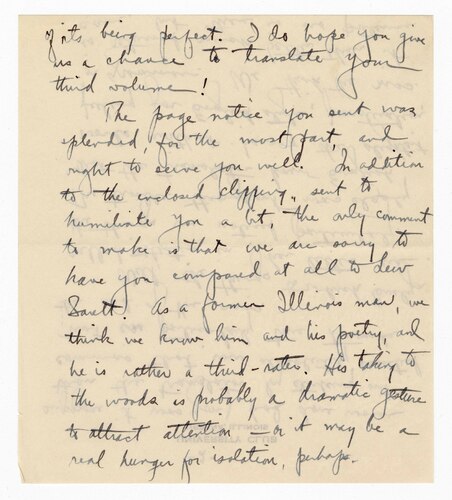 of its being perfect. I do hope you give
us a chance to translate your
third volume!
The page notice you sent was
splendid, for the most part, and
ought to serve you well. In addition
to the enclosed clipping, sent to
humiliate you a bit, the only comment
to make is that we are sorry to
have you compared at all to Lew
Sarett. As a former Illinois man, we
think we know him and his poetry, and
he is rather a third-rater. His taking to
the woods is probably a dramatic gesture
to attract attention — or it may be a
real hunger for isolation, perhaps.